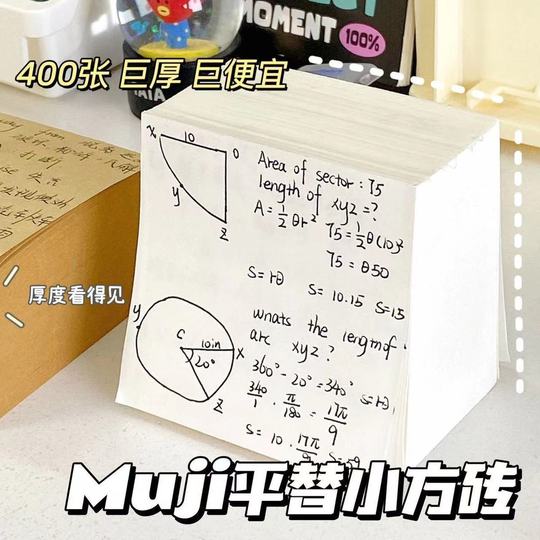 MOMENT
100%
400张 巨厚 巨便宜
x
10
O
y
z
Area of sector : 75
length of xyz = ?
A = 1/2 θr²
75 = 1/2 θ(10)²
75 = θ50
S = rθ
S = 10·15
S = 15
厚度看得见
y
C
10in
x
20°
z
whats the length of
arc xyz ?
360° - 20° = 340°
S = rθ
340/1 · π/180 = 17π/9
S = 10 · 17π/9
Muji平替小方砖